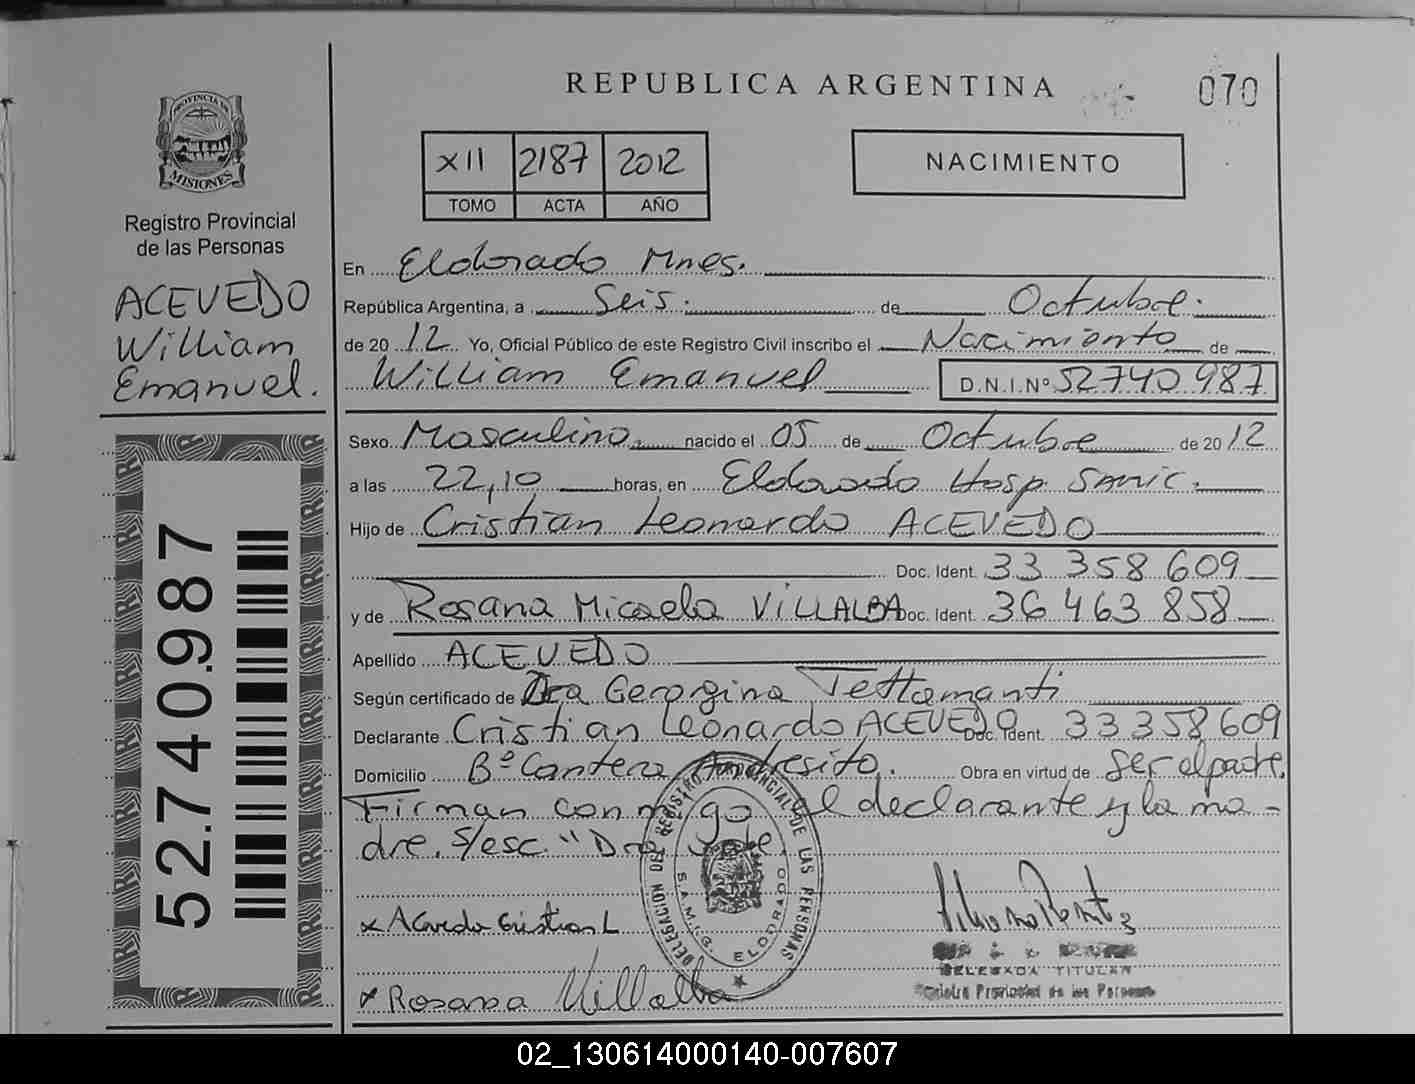 REPUBLICA ARGENTINA
070
PROVINCIA DE MISIONES
XII 2187 2012
TOMO ACTA AÑO
NACIMIENTO
Registro Provincial
de las Personas
ACEVEDO
William
Emanuel.
En Eldorado Mnes.
República Argentina, a Seis. de Octubre.
de 20 12 Yo, Oficial Público de este Registro Civil inscribo el Nacimiento de
William Emanuel D.N.I.Nº 52740987
Sexo Masculino nacido el 05 de Octubre de 20 12
a las 22,10 horas, en Eldorado Hosp. Samic.
Hijo de Cristian Leonardo ACEVEDO
Doc. Ident. 33 358 609
y de Rosana Micaela VILLALBA Doc. Ident. 36 463 858
Apellido ACEVEDO
Según certificado de Dra Georgina Tettamanti
Declarante Cristian Leonardo ACEVEDO Doc. Ident. 33 358 609
Domicilio Bº Cantera Andresito. Obra en virtud de ser el padre.
Firman conmigo el declarante y la ma-
dre. S/esc.
52.740.987
DELEGACION DEL REGISTRO PROVINCIAL DE LAS PERSONAS
S.A.M.I.C. ELDORADO
x Acevedo Cristian L
DELEGADA TITULAR
Registro Provincial de las Personas
x Rosana Villalba
02_130614000140-007607